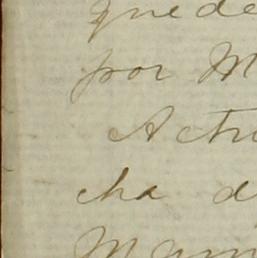 quede
por M
Actu
cha d
Mam